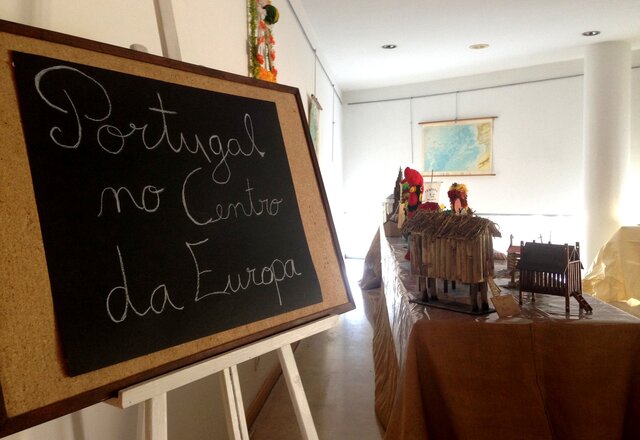 Portugal
no Centro
da Europa